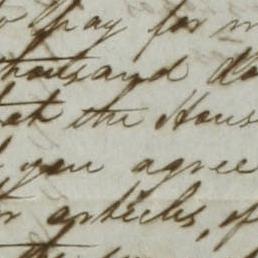 to pay for m
thousand do
at the Hous
you agree
or articles, of